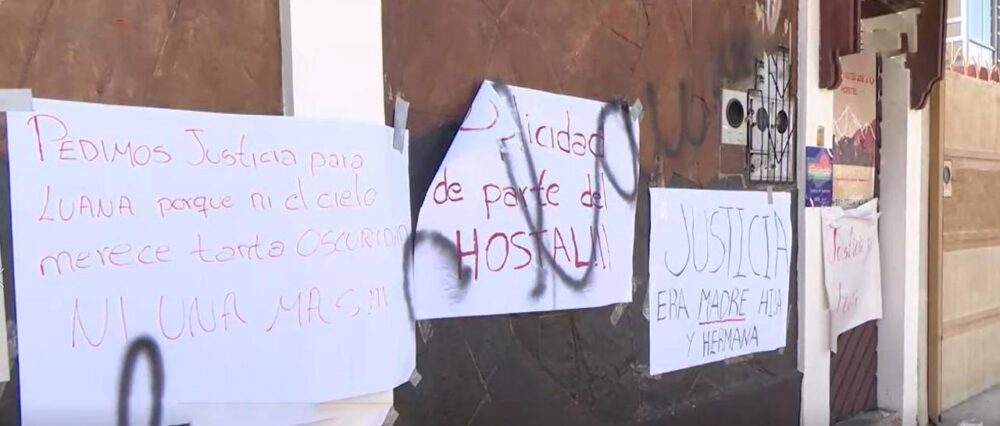 PEDIMOS Justicia para
LUANA porque ni el cielo
merece tanta OSCURIDAD
NI UNA MAS!!!
de parte del
HOSTAL!!!
JUSTICIA
ERA MADRE HIJA
Y HERMANA
HOSTEL
Justicia